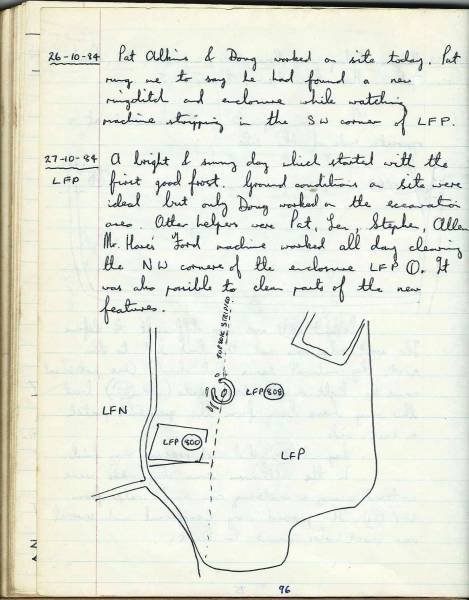 26-10-84 Pat Adkins & Doug worked on site today. Pat
rung me to say he had found a new
ringditch and enclosure while watching
machine stripping in the SW corner of LFP.
27-10-84 A bright & sunny day which started with the
LFP first good frost. Ground conditions on site were
ideal but only Doug worked on the excavation
area. Other helpers were Pat, Len, Stephen, Allen
Mr. Hare's Ford machine worked all day clearing
the NW corners of the enclosure LFP 1. It
was also possible to clean parts of the new
features.
TOPSOIL STRIPPED
LFP 808
LFN
LFP 800
LFP
96